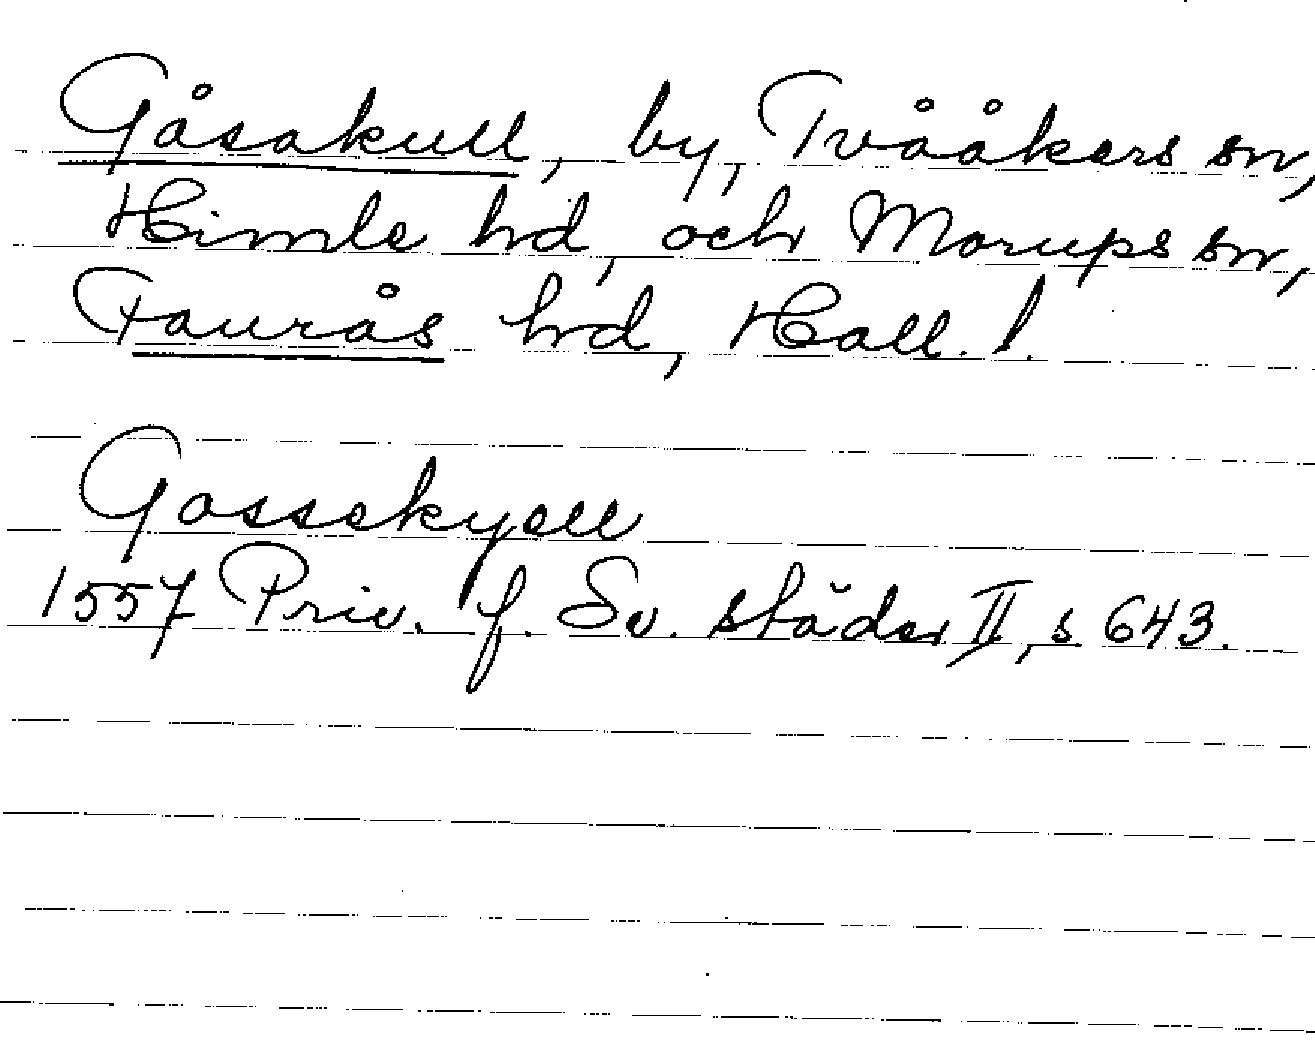 Gåsakull, by, Tvååkers sn,
Himle hd, och Morups sn,
Faurås hd, Hall. l.
Gossekyell
1557 Priv. f. Sv. städer II, s 643.